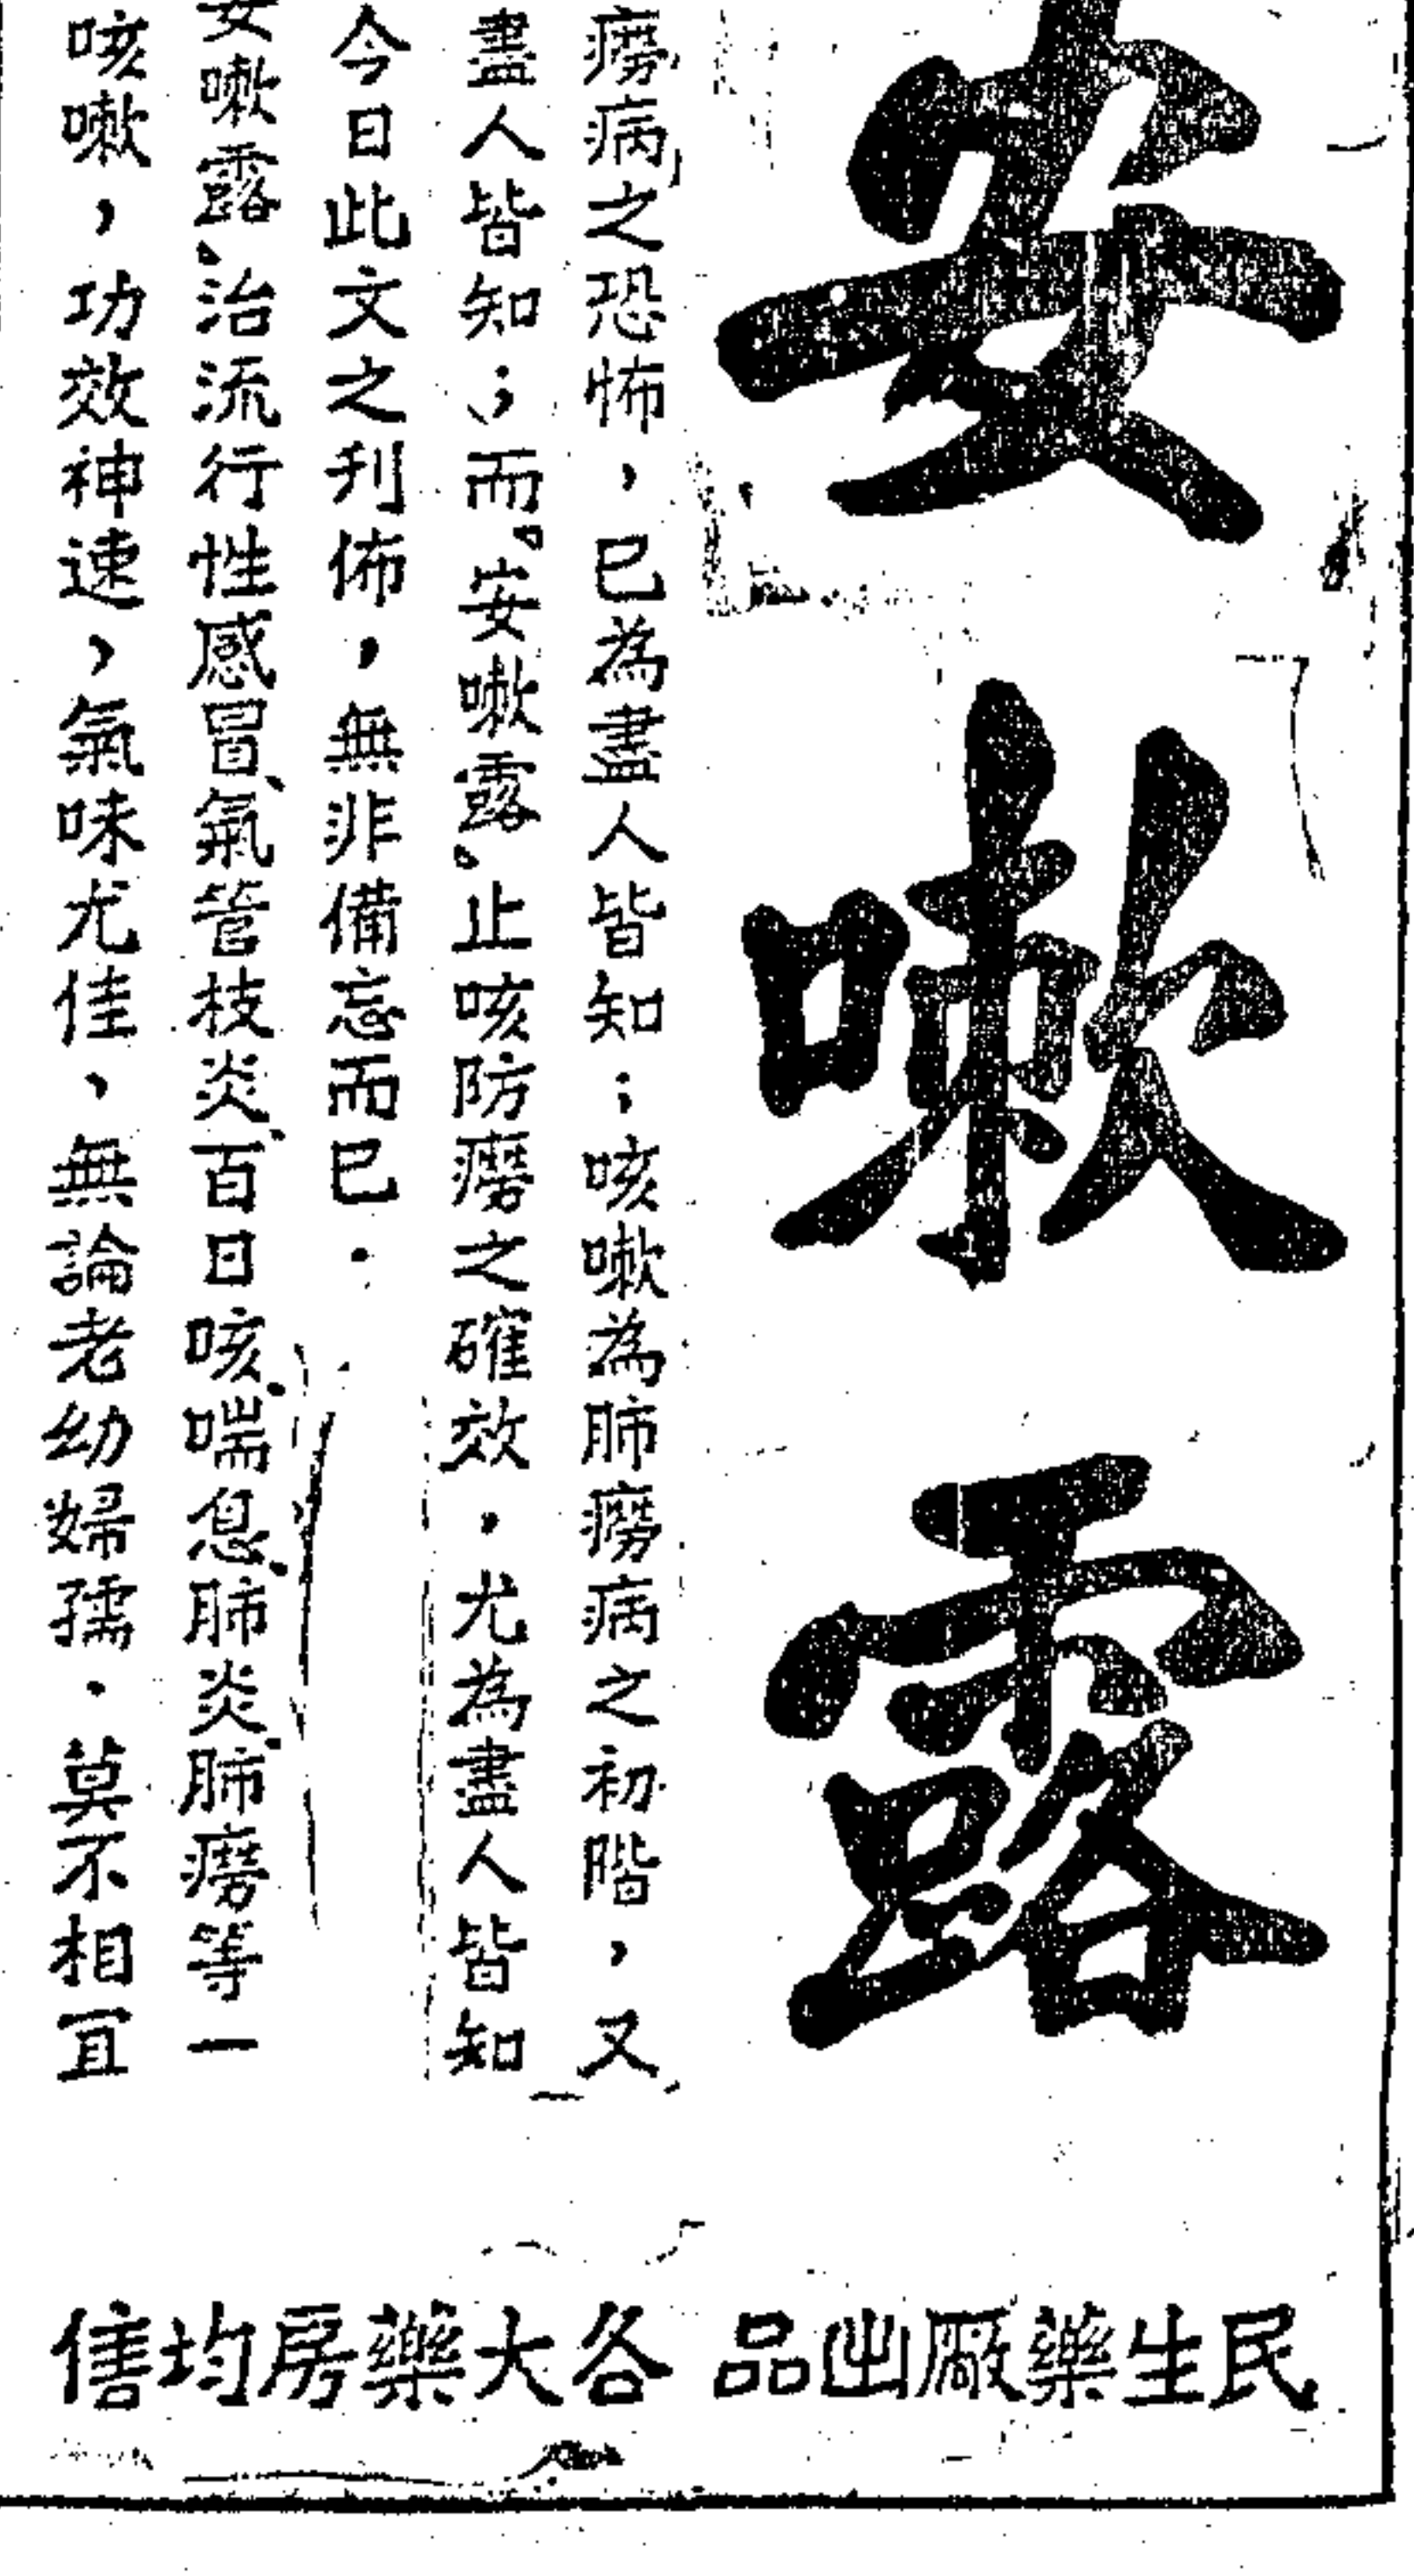 安嗽露
癆病之恐怖，已為盡人皆知；咳嗽為肺癆病之初階，又
盡人皆知；而「安嗽露」止咳防癆之確效，尤為盡人皆知
今日此文之刋佈，無非備忘而已．
安嗽露、治流行性感冒、氣管枝炎、百日咳、喘息、肺炎、肺癆等一
咳嗽，功效神速，氣味尤佳、無論老幼婦孺．莫不相宜
民生藥廠出品 各大藥房均售